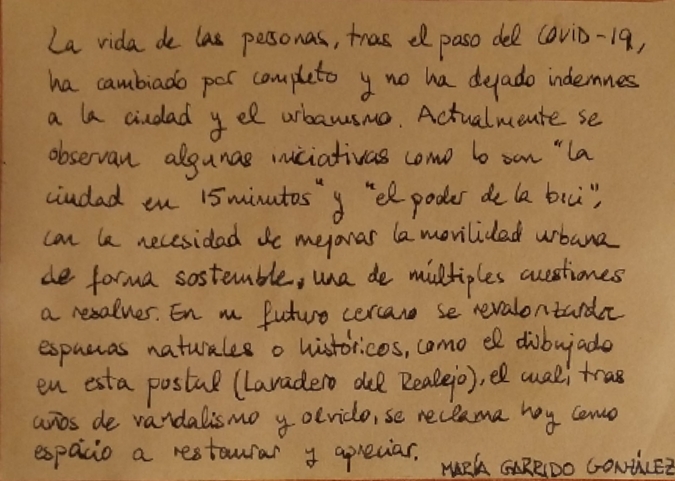 La vida de las personas, tras el paso del COVID-19,
ha cambiado por completo y no ha dejado indemnes
a la ciudad y el urbanismo. Actualmente se
observan algunas iniciativas como lo son "la
ciudad en 15 minutos" y "el poder de la bici",
con la necesidad de mejorar la movilidad urbana
de forma sostenible, una de múltiples cuestiones
a resolver. En un futuro cercano se revalorizarán
espacios naturales o históricos, como el dibujado
en esta postal (Lavadero del Realejo), el cual, tras
años de vandalismo y olvido, se reclama hoy como
espacio a restaurar y apreciar.
MARÍA GARRIDO GONZÁLEZ